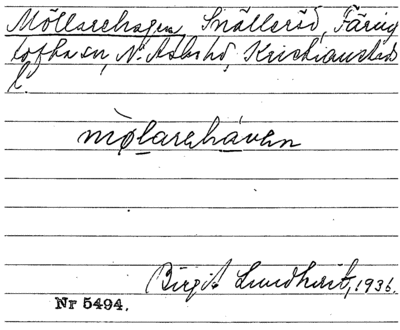 Möllarehagen, Snälleröd, Färing
tofta sn, N. Åsbo hd, Kristianstads
l.
mølareháven
Birgit Lundkvist, 1936.
Nr 5494.